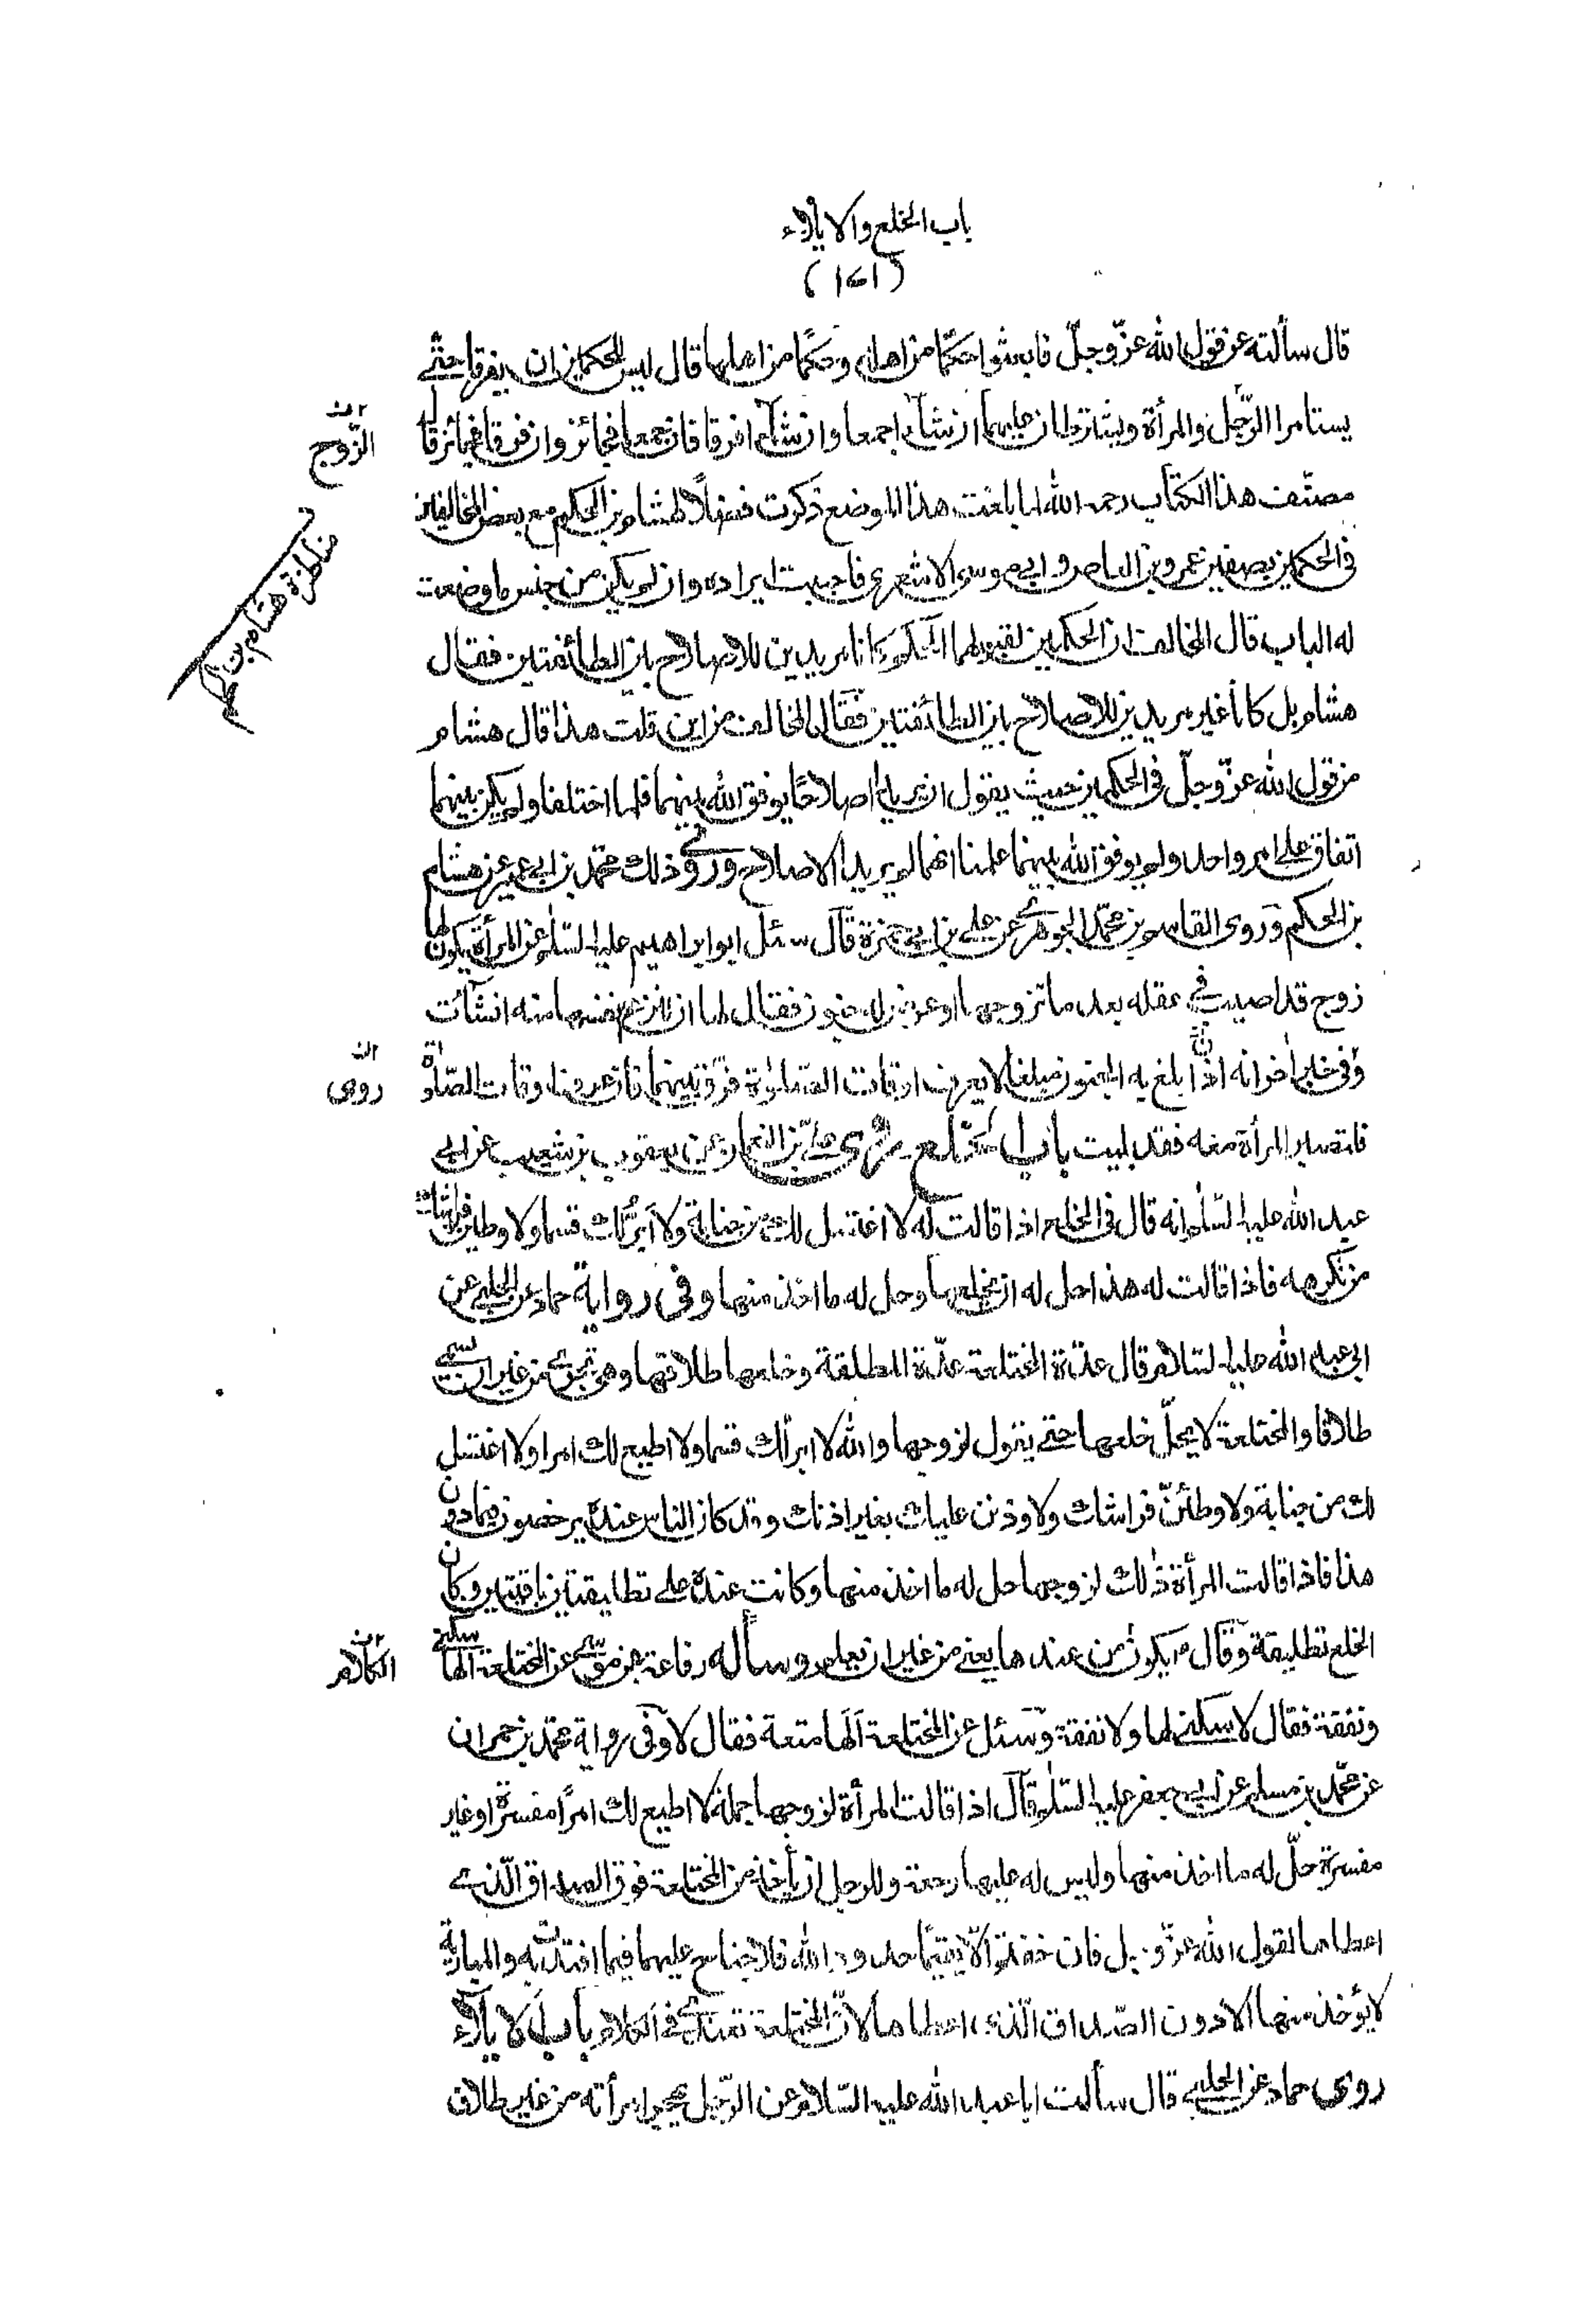 باب الخلع والايلاء
(١٤١)
قال سألته عن قول الله عزّ وجلّ فابعثوا حكمًا من اهله وحكمًا من اهلها قال ليس للحكمين ان يفرقا حتّى
يستامرا الرّجل والمرأة ويشترطان عليهما ان شاءا جمعا وان شاءا فرقا فان جمعا فجائز وان فرقا فجائز قال
الزّوج
مصنّف هذا الكتاب رحمه الله لما بلغت هذا الموضع ذكرت فصلًا لهشام بن الحكم مع بعض المخالفين
مناظرة هشام بن الحكم
فى الحكمين بصفين عمرو بن العاص وابى موسى الاشعرى فاحببت ايراده وان لم يكن من جنس ما وضعت
له الباب قال المخالف ان الحكمين لقبولهما الحكم كانا مريدين للاصلاح بين الطائفتين فقال
هشام بل كانا غير مريدين للاصلاح بين الطائفتين فقال المخالف من اين قلت هذا قال هشام
من قول الله عزّ وجلّ فى الحكمين حيث يقول ان يريدا اصلاحًا يوفق الله بينهما فلما اختلفا ولم يكن بينهما
اتفاق على امر واحد ولم يوفق الله بينهما علمنا انهما لم يريدا الاصلاح وروى ذلك محمّد بن ابى عمير عن هشام
بن الحكم وروى القاسم بن محمّد الجوهرى عن على بن ابى حمزة قال سئل ابو ابراهيم عليه السّلم عن المرأة يكون لها
زوج قد اصيب فى عقله بعد ما تزوجها او عرض له جنون فقال لها ان تنزع نفسها منه ان شآئت
وفى خبر اخر انه اذا بلغ به الجنون مبلغا لا يعرف اوقات الصّلوة فرّق بينهما فان عرف اوقات الصّلوة
روى
فلتصبر المرأة معه فقد بليت باب الخلع روى علىّ بن النعمان عن يعقوب بن شعيب عن ابى
عبد الله عليه السّلم انه قال فى الخلع اذا قالت له لا اغتسل لك من جنابة ولا ابرّ لك قسما ولا وطين فراشك
من تكرهه فاذا قالت له هذا حل له ان يخلعها وحل له ما اخذ منها وفى رواية حماد عن الحلبى عن
ابى عبد الله عليه السّلام قال عدّة المختلعة عدّة المطلقة وخلعها طلاقها وهى تجزى من غير ان يسمّى
طلاقا والمختلعة لا يحلّ خلعها حتى يقول لزوجها والله لا ابرّ لك قسما ولا اطيع لك امرا ولا اغتسل
لك من جنابة ولا وطئنّ فراشك ولا وذنن عليك بغير اذنك وقد كان الناس عنده يرخصون فيما دون
هذا فاذا قالت المرأة ذلك لزوجها حل له ما اخذ منها وكانت عنده على تطليقتين باقيتين وكان
الخلع تطليقة وقال ع يكون من عندها يعنى من غير ان يعلم وسأله رفاعة بن موسى عن المختلعة الها سكنى
الكلام
ونفقة فقال لا سكنى لها ولا نفقة وسئل عن المختلعة الها متعة فقال لا وفى رواية محمّد بن حمران
عن محمّد بن مسلم عن ابى جعفر عليه السّلم قال اذا قالت المرأة لزوجها جملة لا اطيع لك امرًا مفسرة او غير
مفسرة حلّ له ما اخذ منها وليس له عليها رجعة وللرجل ان يأخذ من المختلعة فوق الصداق الّذى
اعطاها لقول الله عزّ وجل فان خفتم الّا يقيما حدود الله فلا جناح عليهما فيما افتدت به والمبارية
لا يؤخذ منها الا دون الصّداق الّذى اعطاها لانّ المختلعة تعتدى فى الكلام باب الايلاء
روى حماد عن الحلبى قال سألت ابا عبد الله عليه السّلام عن الرّجل يهجر امرأته من غير طلاق